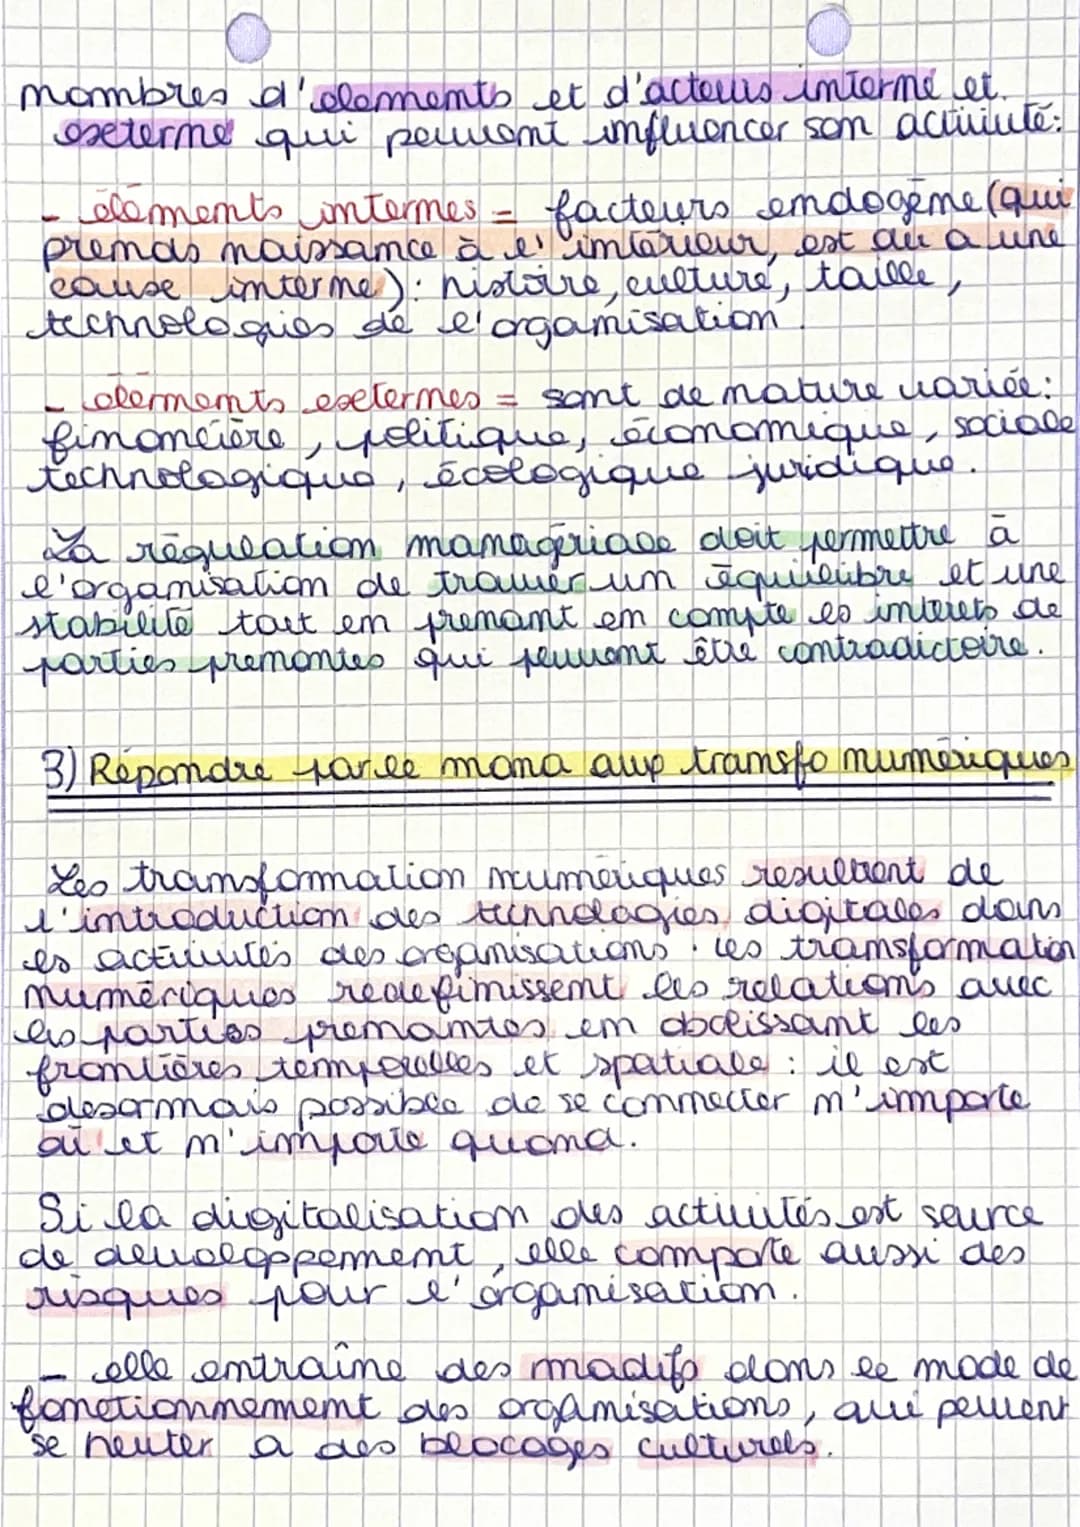 nombres d'elements et d'acteurs interne et
externe qui peuvent influencer son activité:
- éléments internes = facteurs endogène (qui
prends naissance à l'intérieur, est du a une
cause interne): histoire, culture, taille,
technologies de l'organisation.
- éléments externes = sont de nature variée:
financière, politique, économique, sociale
technologique, écologique juridique.
La régulation managériale doit permettre à
l'organisation de trouver un équilibre et une
stabilité tout en prenant en compte les interets de
parties prenantes qui peuvent être contradictoire.
3) Répondre par le mana aux transfo numériques
Les transformation numériques resultent de
l'introduction des technologies digitales dans
les activités des organisations. les transformation
numériques redefinissent les relations avec
les parties prenantes en abolissant les
frontières temporelles et spatiale : il est
desormais possible de se connecter n'importe
où et n'importe quand.
Si la digitalisation des activités est source
de developpement, elle comporte aussi des
risques pour l'organisation.
- elle entraîne des modifs dans le mode de
fonctionnement des organisations, qui peuvent
se heurter a des blocages culturels.